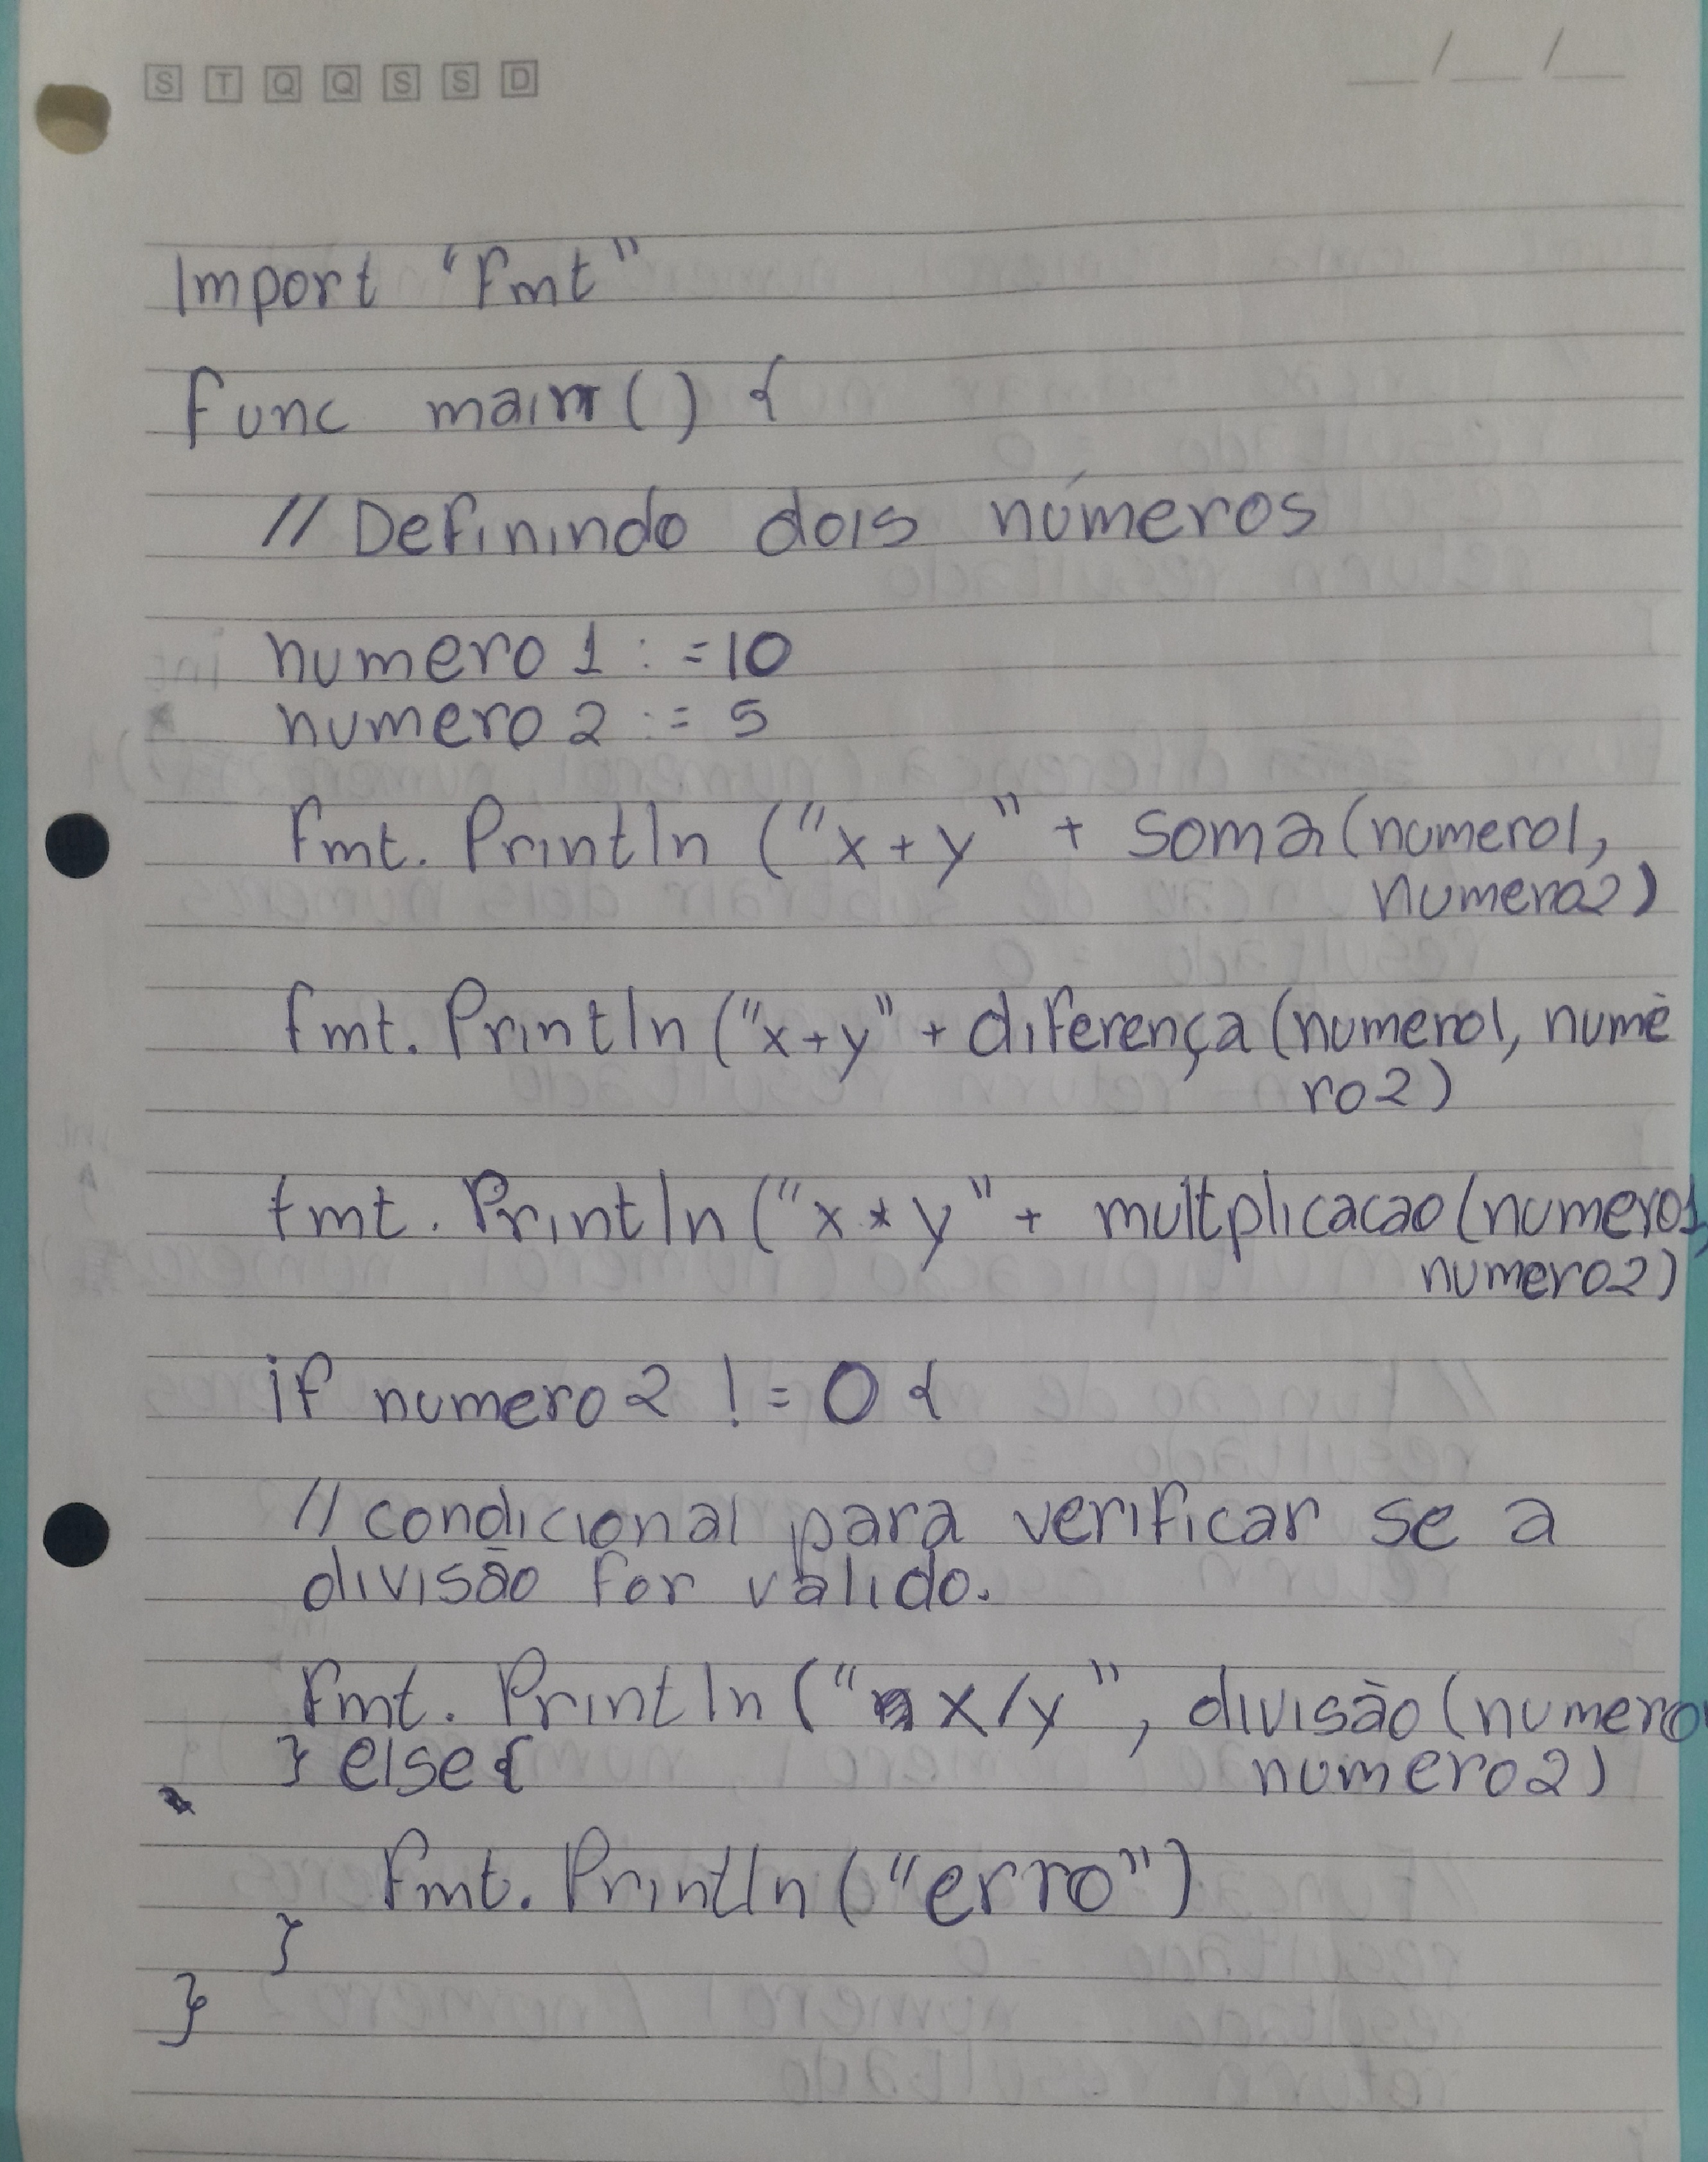 S T Q Q S S D
__/__/__
Import "fmt"
func main() {
// Definindo dois números
numero 1 := 10
numero 2 := 5
fmt. Println ("x+y" + soma (numero1,
numero2)
fmt. Println ("x+y" + diferença (numero1, nume
ro2)
fmt. Println ("x*y" + multplicacao (numero1,
numero2)
if numero 2 != 0 {
// condicional para verificar se a
divisão for valido.
fmt. Println (" x/y", divisão (numero1
} else {
numero2)
fmt. Println ("erro")
}
}